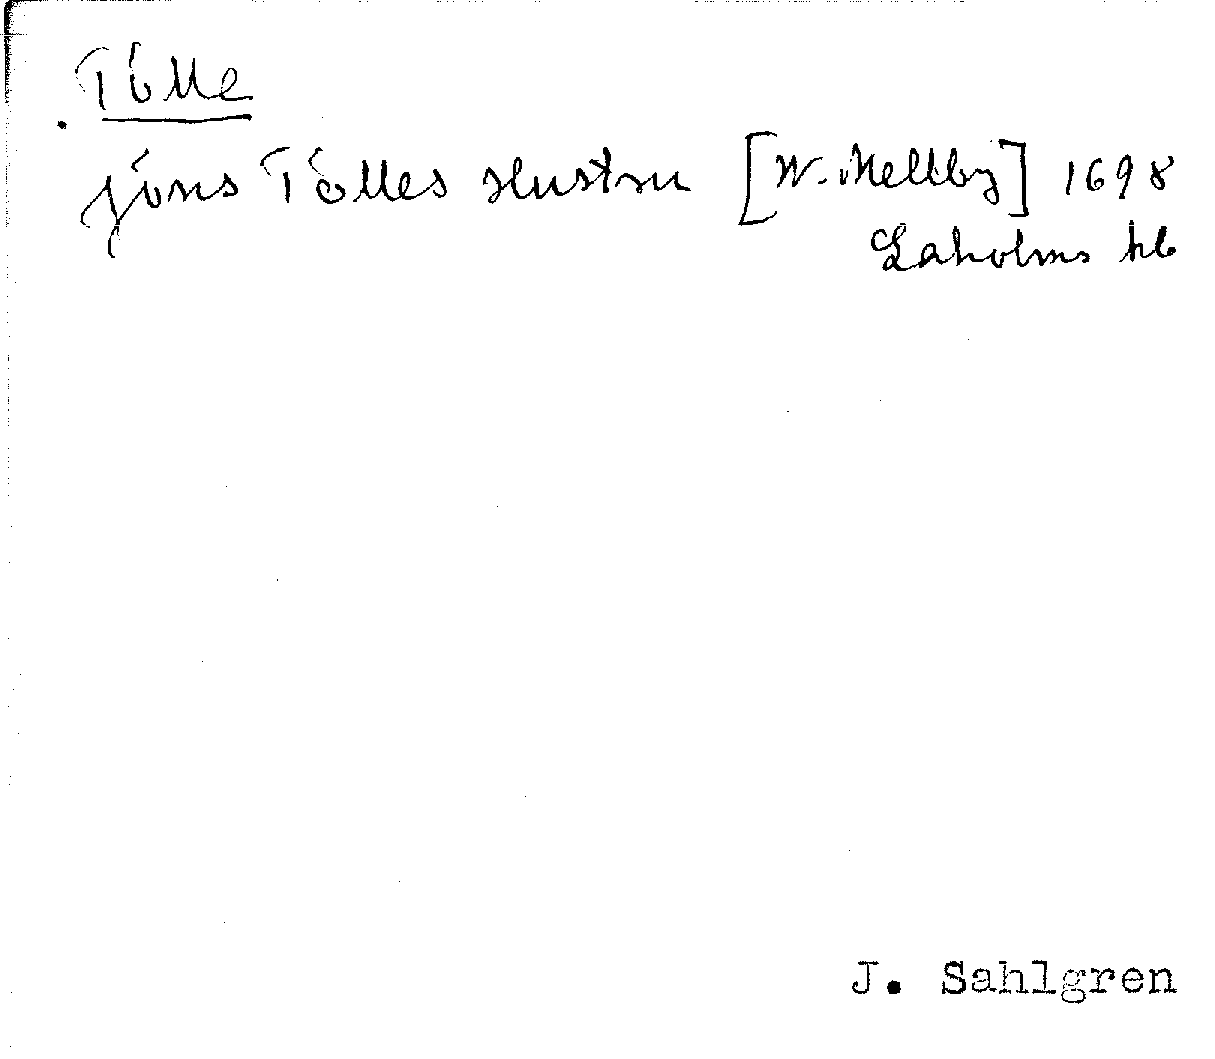 Tólle
jóns Tólles Hustru [W. Mellby] 1698
Laholms hb
J. Sahlgren